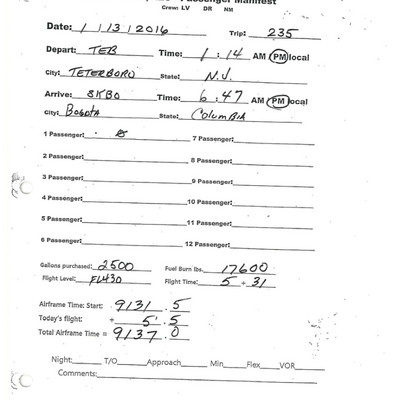 Passenger Manifest
Crew: LV DR NM
Date: 1/13/2016 Trip: 235
Depart: TEB Time: 1:14 AM PM local
City: TETERBORO State: N.J.
Arrive: SKBO Time: 6:47 AM PM local
City: BOGOTA State: COLUMBIA
1 Passenger: 7 Passenger:
2 Passenger: 8 Passenger:
3 Passenger: 9 Passenger:
4 Passenger: 10 Passenger:
5 Passenger: 11 Passenger:
6 Passenger: 12 Passenger:
Gallons purchased: 2500 Fuel Burn lbs. 17600
Flight Level: FL430 Flight Time: 5 + 31
Airframe Time: Start: 9131.5
Today's flight: + 5.5
Total Airframe Time = 9137.0
Night: T/O Approach Min Flex VOR
Comments: